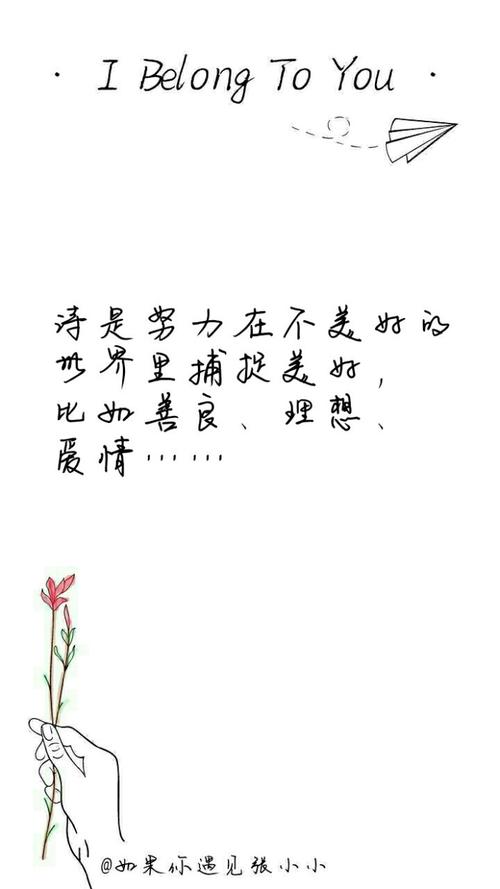 · I Belong To You ·
诗是努力在不美好的
世界里捕捉美好,
比如善良、理想、
爱情……
@如果你遇见张小小